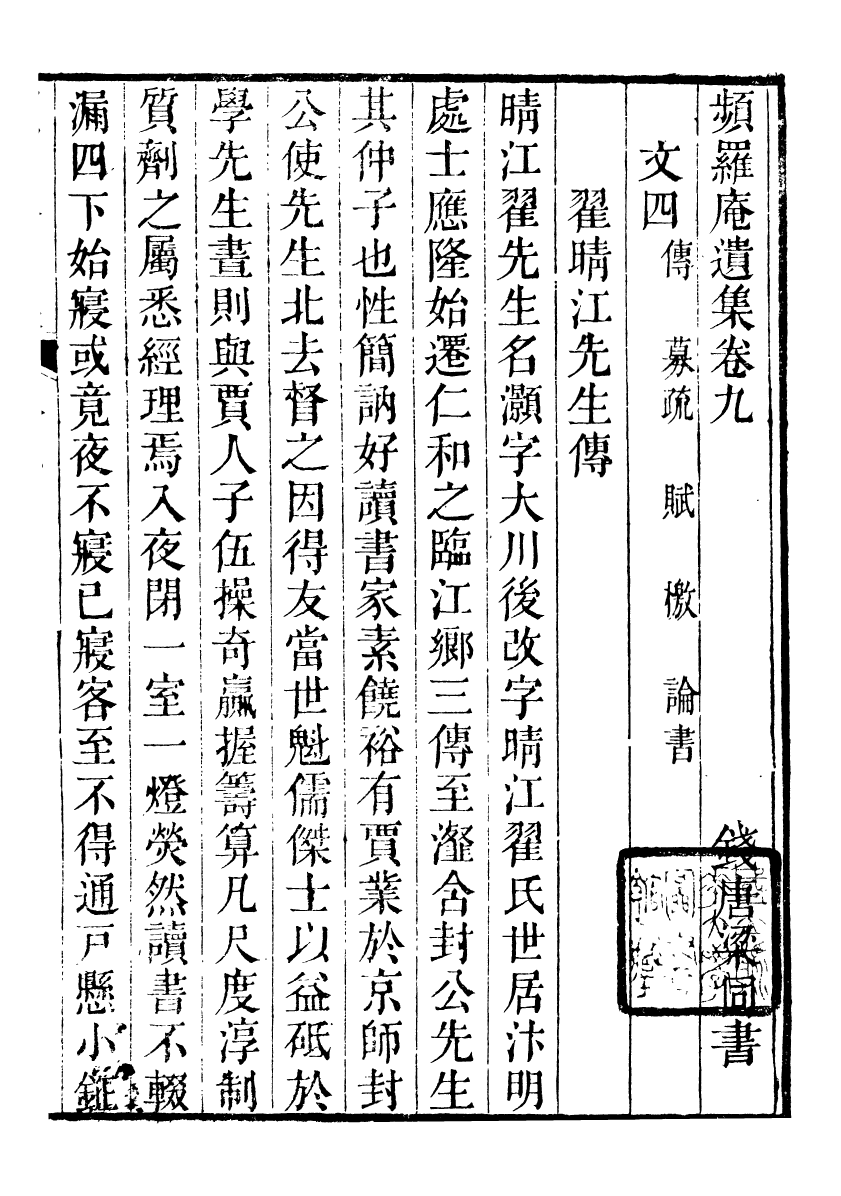 頻羅庵遺集卷九
錢唐梁同書
文四 傳 募疏 賦 檄 論書
翟晴江先生傳
晴江翟先生名灝字大川後改字晴江翟氏世居汴明
處士應隆始遷仁和之臨江鄉三傳至瀣含封公先生
其仲子也性簡訥好讀書家素饒裕有賈業於京師封
公使先生北去督之因得友當世魁儒傑士以益砥於
學先生晝則與賈人子伍操奇羸握籌算凡尺度淳制
質劑之屬悉經理焉入夜閉一室一燈熒然讀書不輟
漏四下始寢或竟夜不寢已寢客至不得通戸懸小鉦